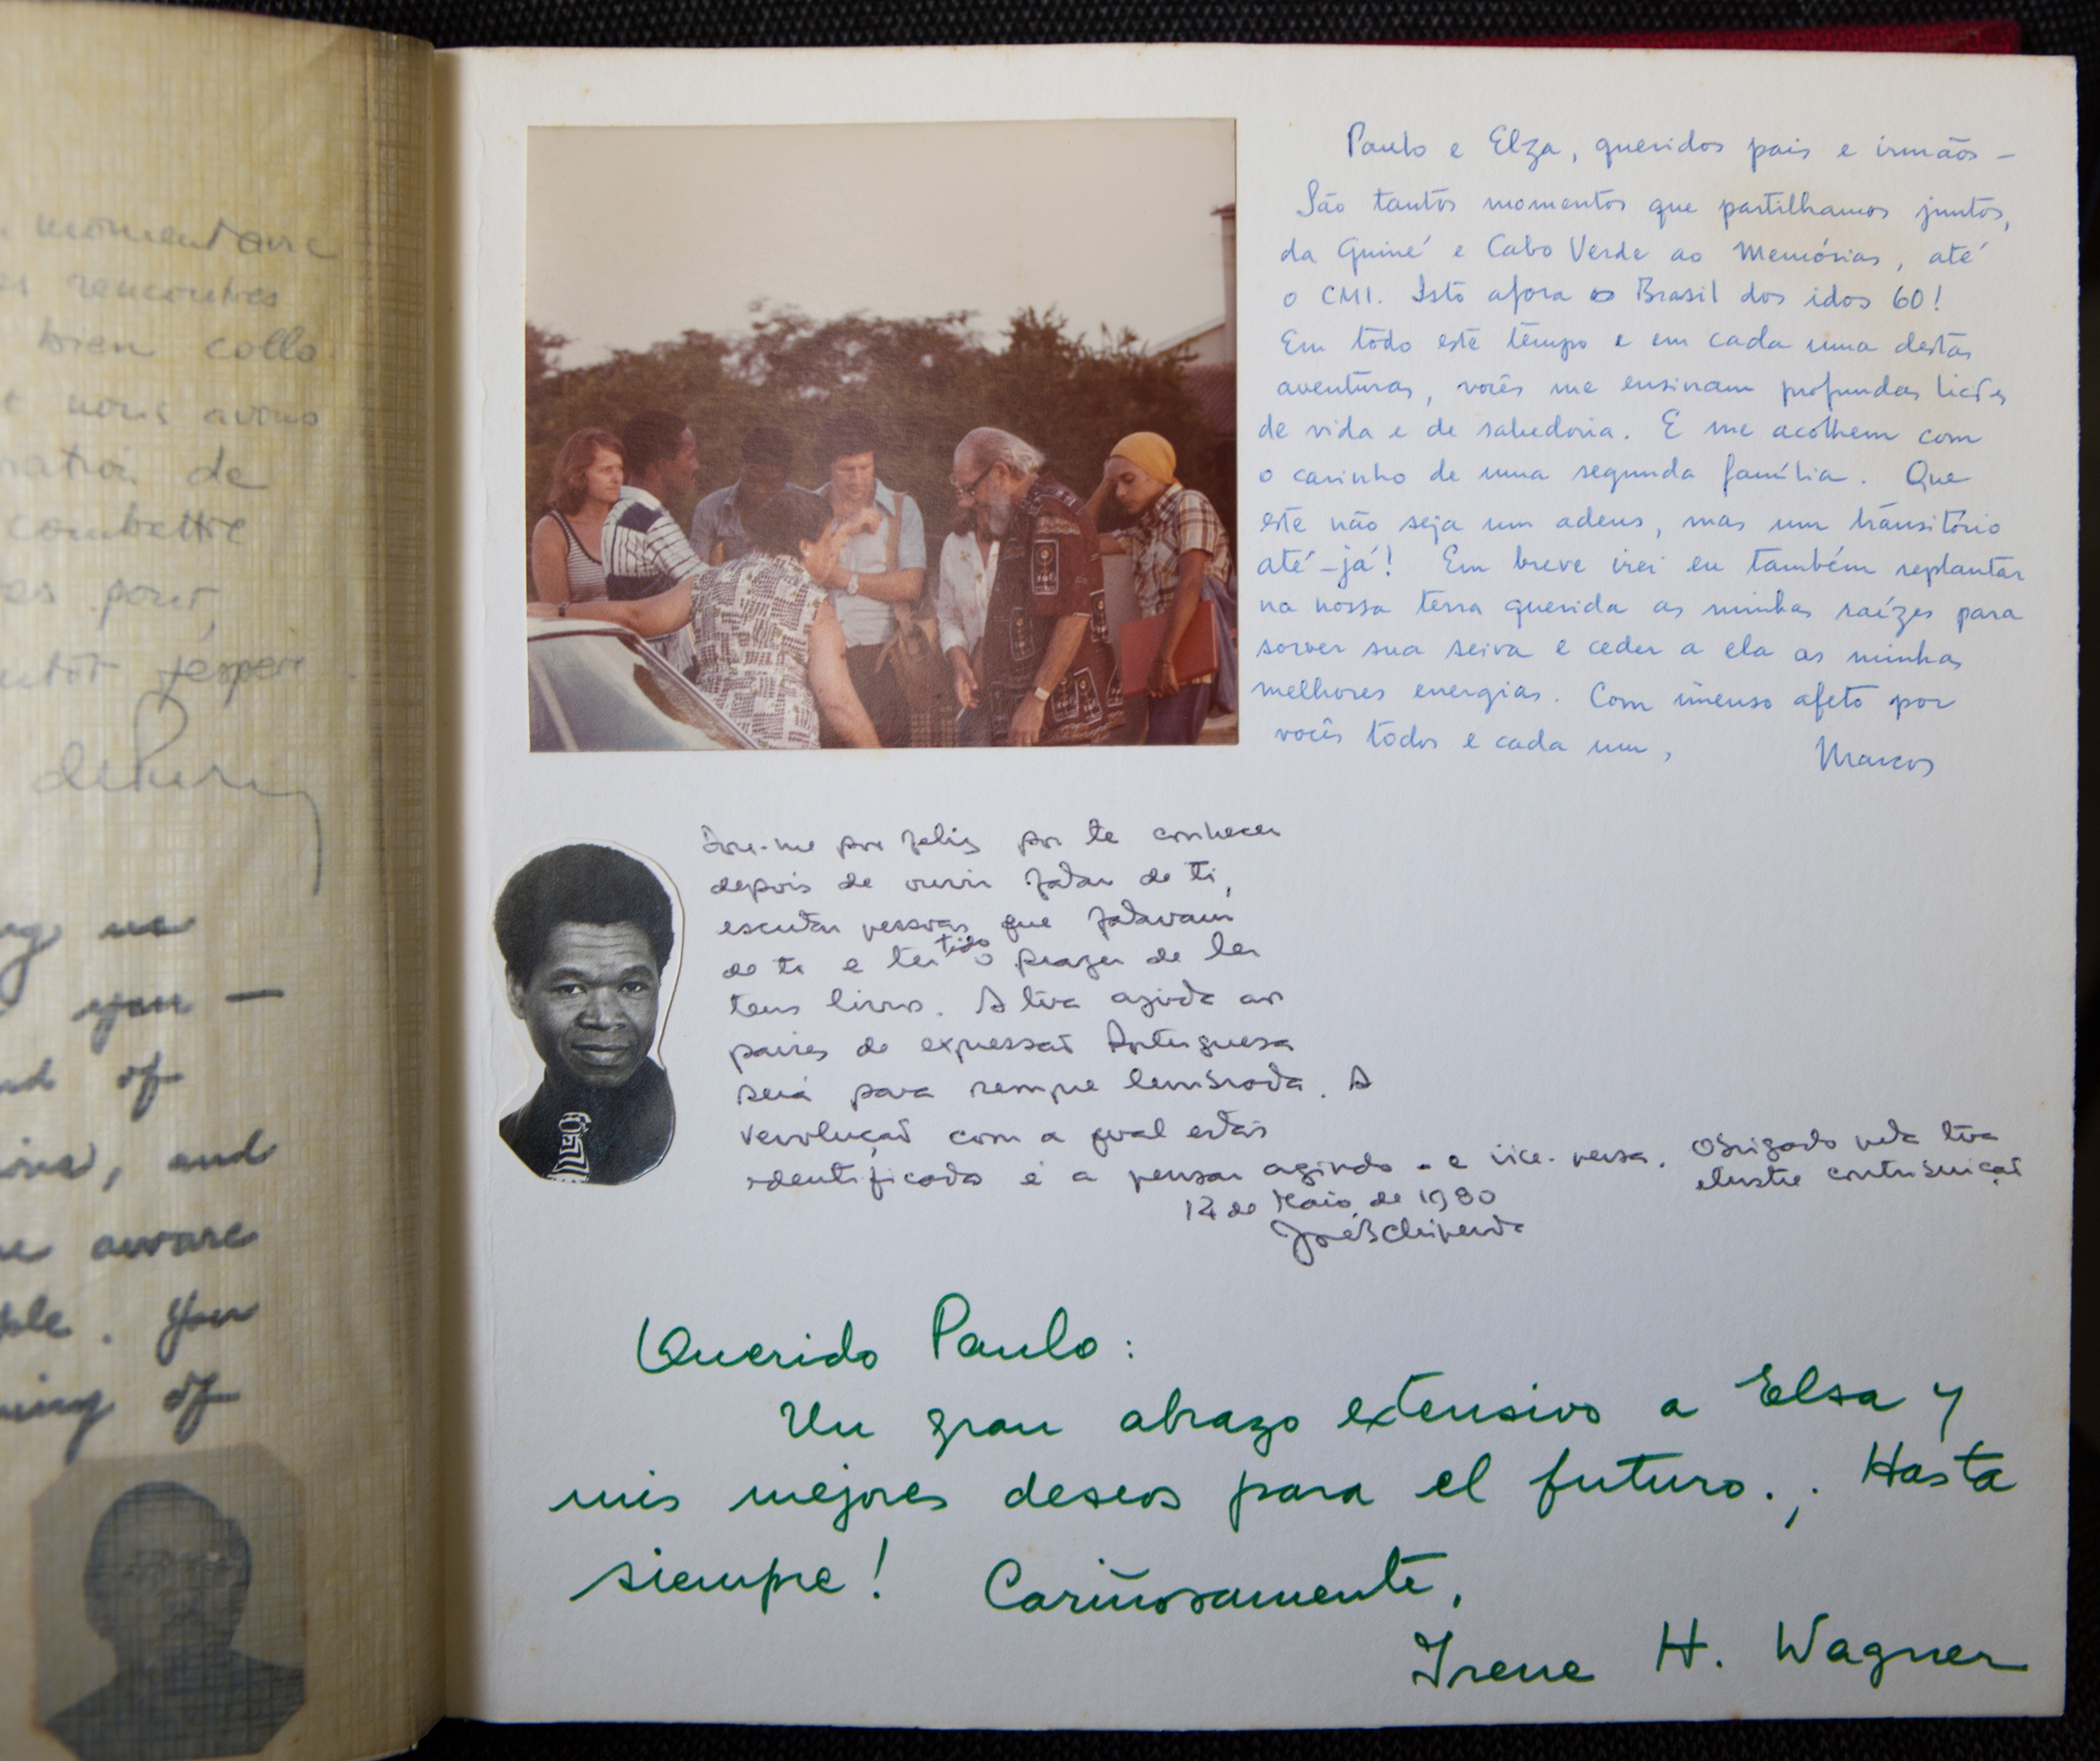 momentané
rencontres
bien collo
nous avons
de
combattre
pour,
j'espère
ng us
you —
nd of
, and
aware
ple. You
ning of
Paulo e Elza, queridos pais e irmãos –
São tantos momentos que partilhamos juntos,
da Guiné e Cabo Verde ao Memórias, até
o CMI. Isto afora o Brasil dos idos 60!
Em todo este tempo e em cada uma destas
aventuras, vocês me ensinam profundas lições
de vida e de sabedoria. E me acolhem com
o carinho de uma segunda família. Que
este não seja um adeus, mas um transitório
até-já! Em breve irei eu também replantar
na nossa terra querida as minhas raízes para
sorver sua seiva e ceder a ela as minhas
melhores energias. Com imenso afeto por
vocês todos e cada um, Marcos
Dou-me por feliz por te conhecer
depois de ouvir falar de ti,
escutar pessoas que falavam
de ti e ter tido o prazer de ler
teus livros. A tua ajuda aos
países de expressão Portuguesa
será para sempre lembrada. A
revolução com a qual estás
identificado é a pensar agindo - e vice-versa. Obrigado pela tua
ilustre contribuição
12 de Maio de 1980
José B Chipenda
Querido Paulo:
Un gran abrazo extensivo a Elsa y
mis mejores deseos para el futuro. ¡Hasta
siempre! Cariñosamente,
Irene H. Wagner